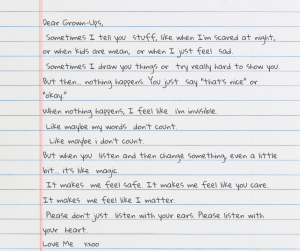 Dear Grown-Ups,
Sometimes I tell you stuff, like when I'm scared at night,
or when kids are mean, or when I just feel sad.
Sometimes I draw you things or try really hard to show you.
But then... nothing happens. You just say "that's nice" or
"okay."
When nothing happens, I feel like i'm invisible.
Like maybe my words don't count.
Like maybe i don't count.
But when you listen and then change something, even a little
bit... it's like magic.
It makes me feel safe. It makes me feel like you care.
It makes me feel like I matter.
Please don't just listen with your ears. Please listen with
your heart.
Love Me xxoo